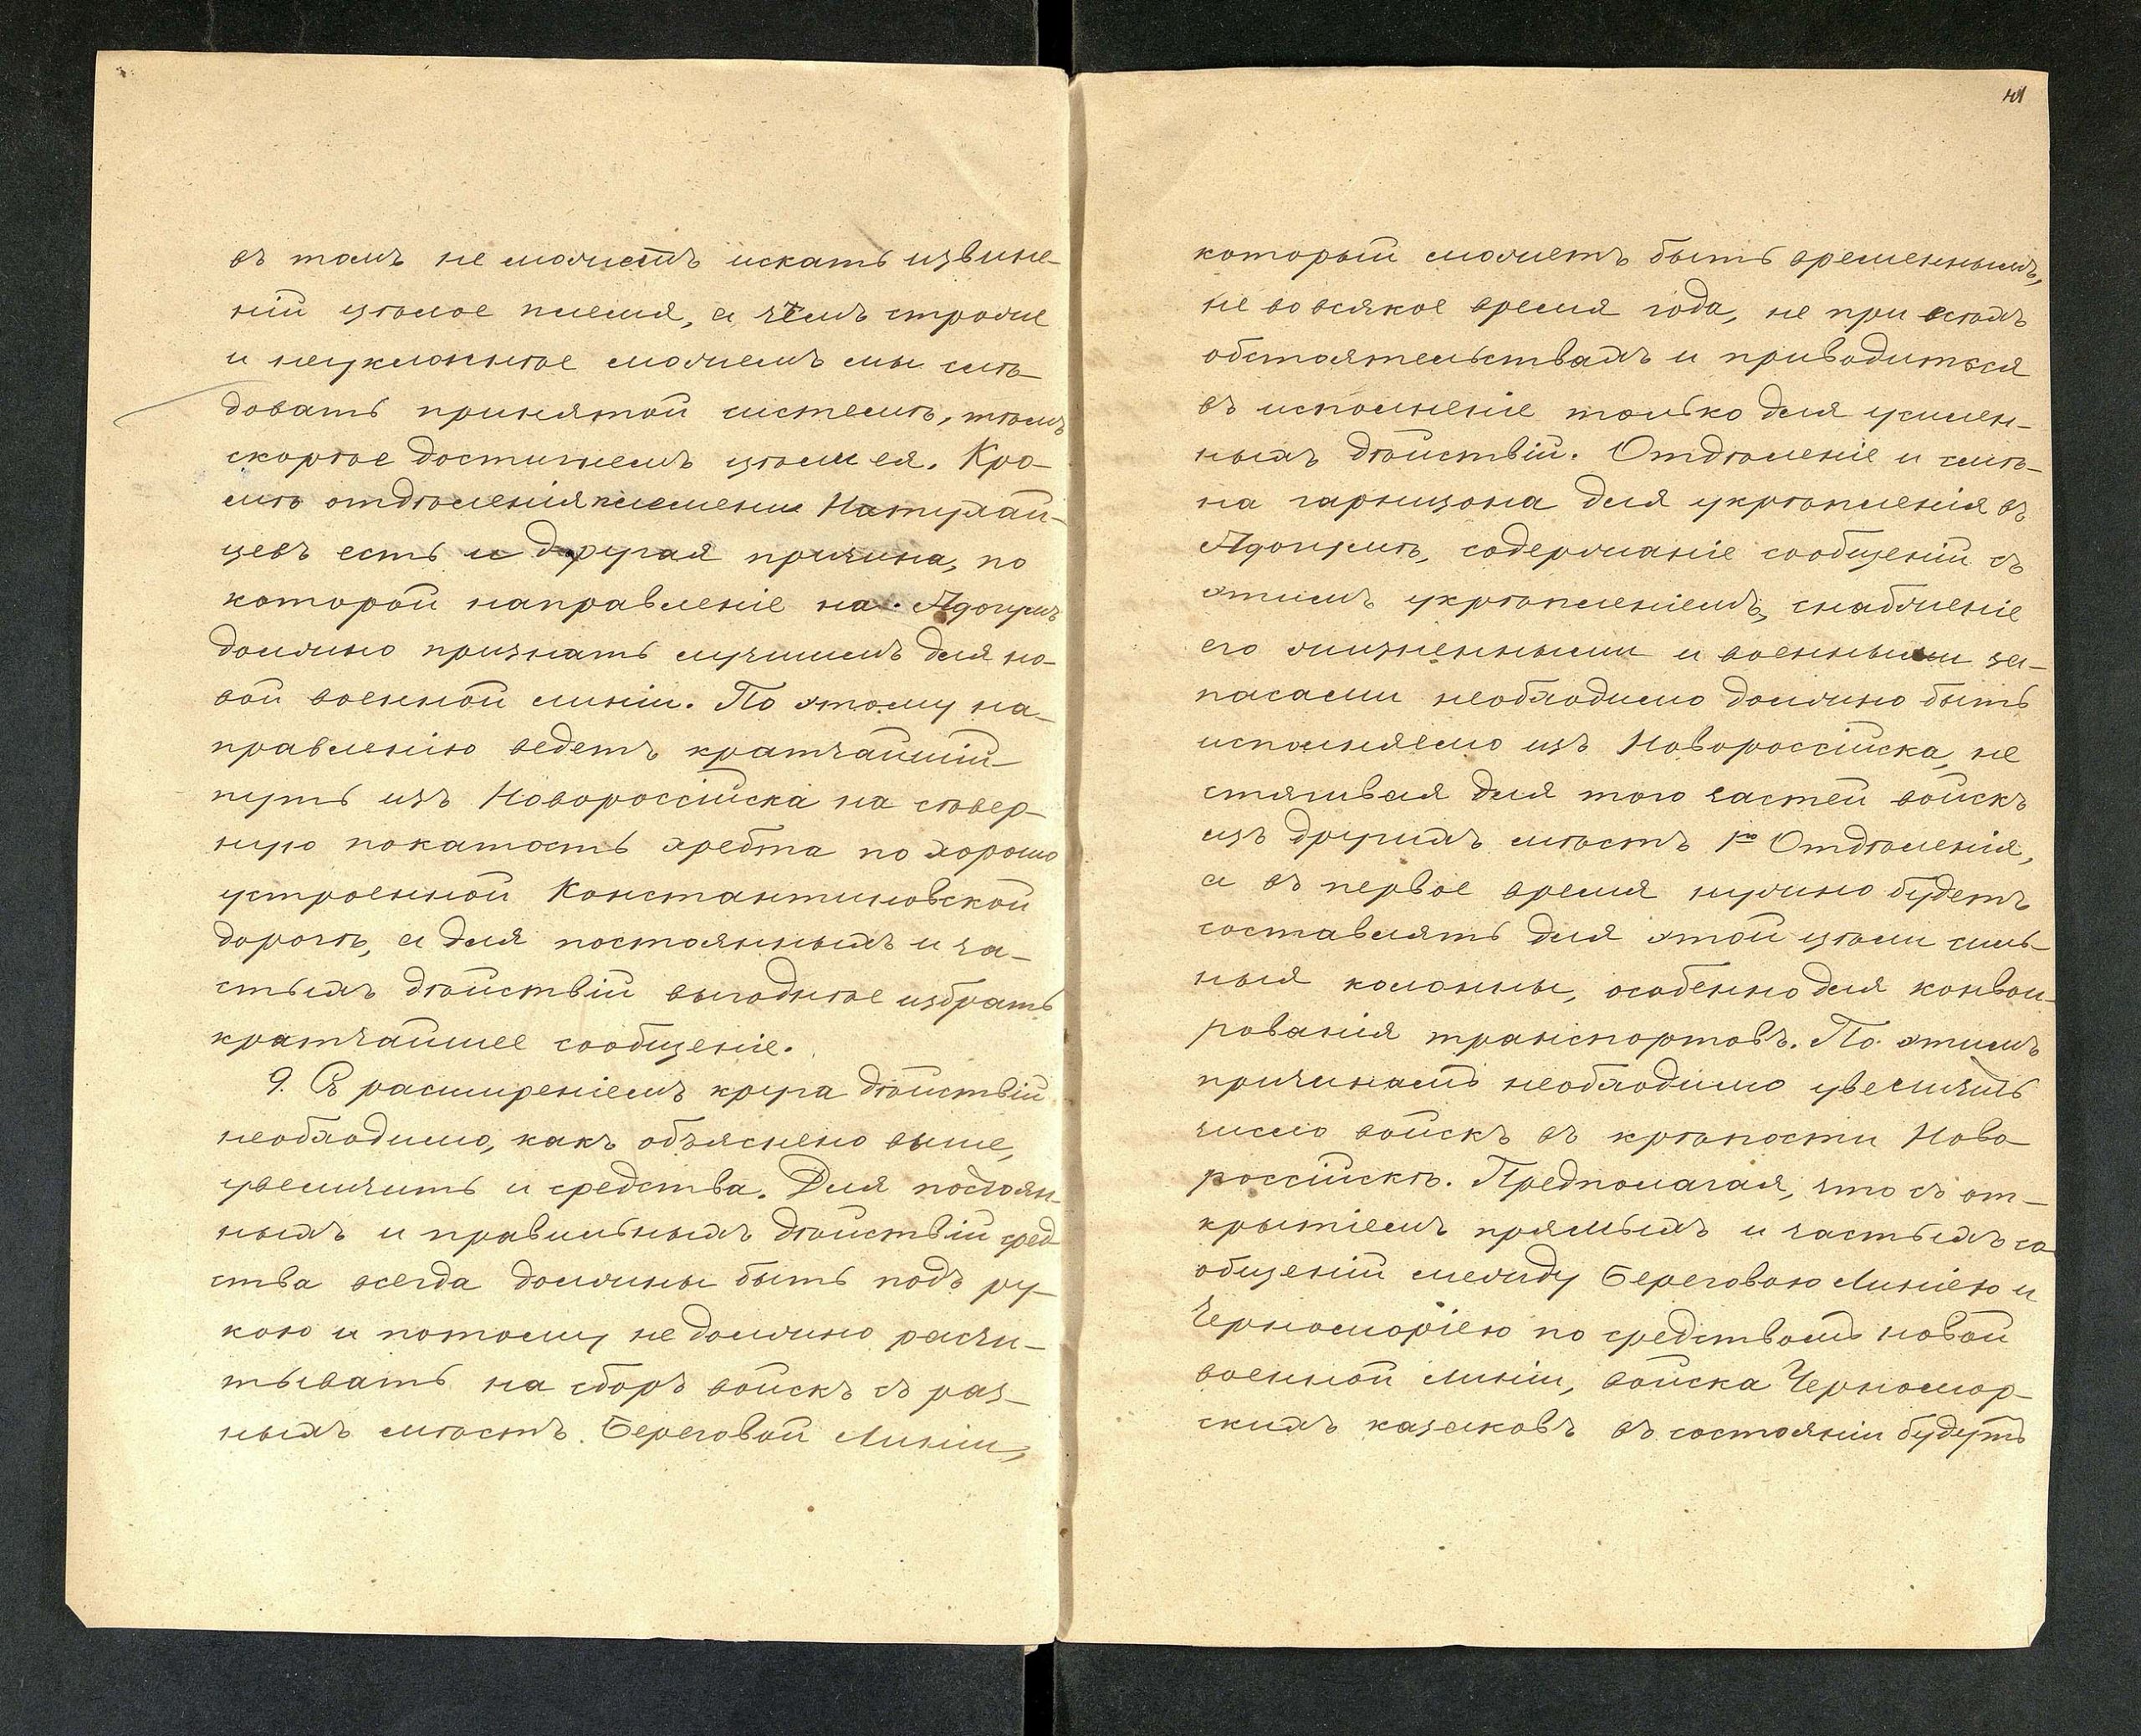 въ томъ не можетъ искать извине-
ній цѣлое племя, а чѣмъ строже
и неуклоннѣе можемъ мы слѣ-
довать принятой системѣ, тѣмъ
скорѣе достигнемъ цѣли ея. Кро-
мѣ отдѣленія племени Натухай-
цевъ есть и другая причина, по
которой направленіе на Адагумъ
должно признать лучшимъ для но-
вой военной линіи. По этому на-
правленію ведетъ кратчайшій
путь изъ Новороссійска на сѣвер-
ную покатость хребта по хорошо
устроенной Константиновской
дорогѣ, а для постоянныхъ и ча-
стыхъ дѣйствій выгоднѣе избрать
кратчайшее сообщеніе.
9. Съ расширеніемъ круга дѣйствій
необходимо, какъ объяснено выше,
увеличить и средства. Для постоян-
ныхъ и правильныхъ дѣйствій сред-
ства всегда должны быть подъ ру-
кою и потому не должно расчи-
тывать на сборъ войскъ съ раз-
ныхъ мѣстъ Береговой Линіи,
который можетъ быть временнымъ,
не во всякое время года, не при всѣхъ
обстоятельствахъ и приводиться
въ исполненіе только для усилен-
ныхъ дѣйствій. Отдѣленіе и смѣ-
на гарнизона для укрѣпленія въ
Адагумѣ, содержаніе сообщеній съ
этимъ укрѣпленіемъ, снабженіе
его жизненными и военными за-
пасами необходимо должно быть
исполняемо изъ Новороссійска, не
стягивая для того частей войскъ
изъ другихъ мѣстъ 1го Отдѣленія,
а въ первое время нужно будетъ
составлять для этой цѣли силь-
ныя колонны, особенно для конвои-
рованія транспортовъ. По этимъ
причинамъ необходимо увеличить
число войскъ въ крѣпости Ново-
россійскѣ. Предполагая, что съ от-
крытіемъ прямыхъ и частыхъ со-
общеній между Береговою Линіею и
Черноморіею по средствомъ новой
военной линіи, войска Черномор-
скихъ казаковъ въ состояніи будутъ